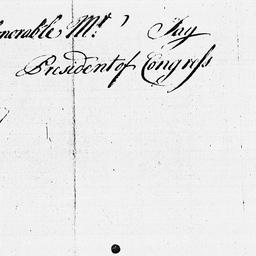 onorable Mr. Jay
President of Congress